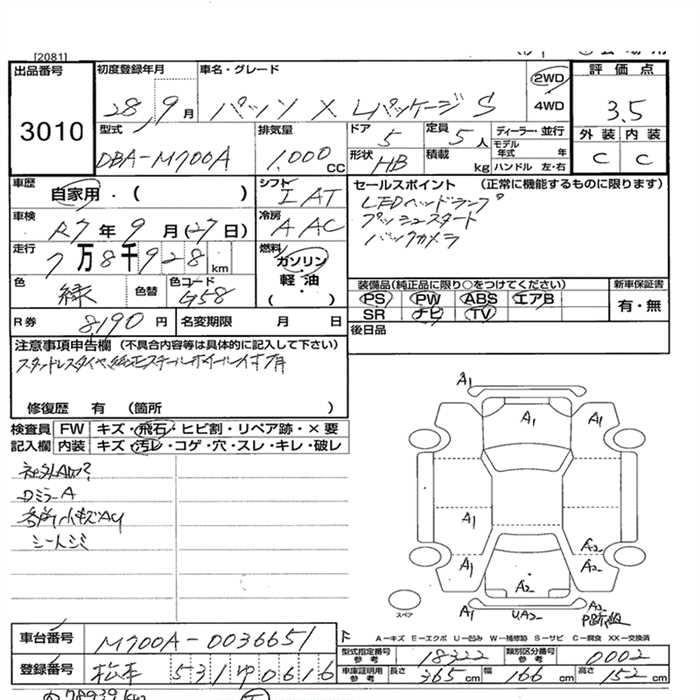 [2081]
出品番号 3010
初度登録年月 28年 9月
車名・グレード パッソ X Lパッケージ S
2WD
4WD
評価点 3.5
外装 C
内装 C
型式 DBA-M700A
排気量 1,000 CC
ドア 5
定員 5人
形状 HB
積載 kg
ディーラー・並行
モデル年式 年
ハンドル 左・右
車歴 自家用・( )
シフト I AT
車検 R7年 9月(27日)
冷房 A AC
走行 7万8千928km
燃料 ガソリン 軽油 ( )
色 緑
色替
色コード G58
R券 8,190円
名変期限 月 日
セールスポイント (正常に機能するものに限ります)
LEDヘッドランプ
プッシュスタート
バックカメラ
装備品(純正品に限り○をつけてください)
PS PW ABS エアB
SR ナビ TV
新車保証書
有・無
後日品
注意事項申告欄 (不具合内容等は具体的に記入して下さい)
スタッドレスタイヤ、純正スチールホイール付
修復歴 有 (箇所 )
検査員 FW キズ・飛石・ヒビ割・リペア跡・×要
記入欄 内装 キズ・汚レ・コゲ・穴・スレ・キレ・破レ
ロミラーA
各所小キズAC
シートシミ
A1
A1 A1
A1 A2
A1 A2
A2
A1 UA2 A2
スペア
A-キズ E-エクボ U-凹み W-補修跡 S-サビ C-腐食 XX-交換済
車台番号 M700A-0036651
登録番号 松本 531 ゆ 0616
型式指定番号 参考 18322
類別区分番号 参考 0002
車庫証明用 参考 長さ 365cm 幅 166cm 高さ 152cm
78939km